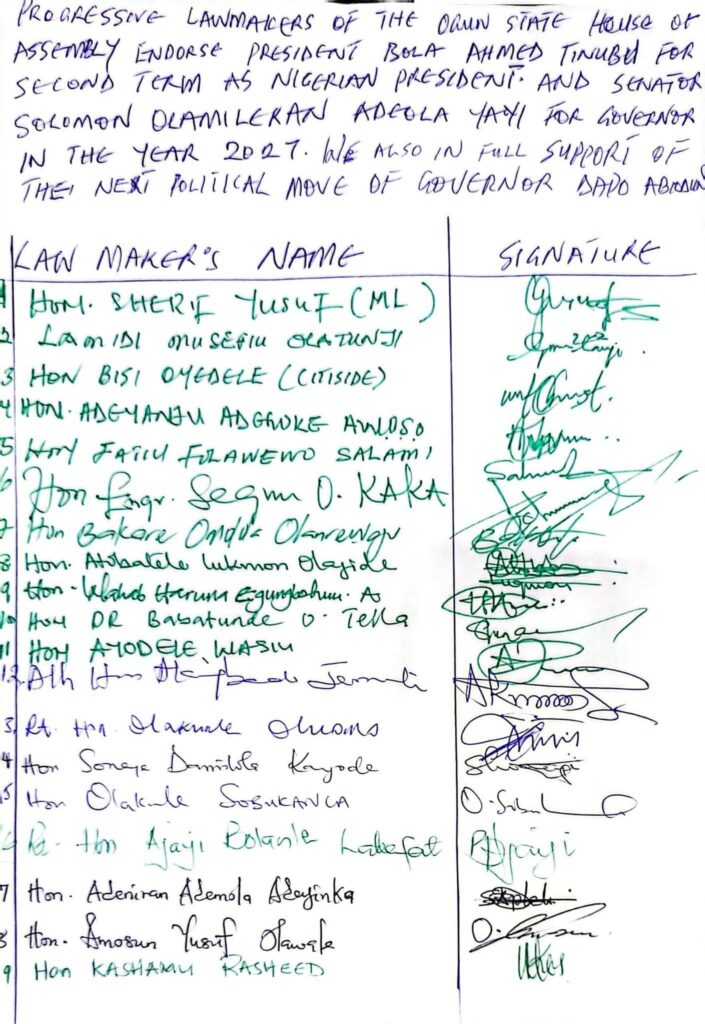 PROGRESSIVE LAWMAKERS OF THE OGUN STATE HOUSE OF
ASSEMBLY ENDORSE PRESIDENT BOLA AHMED TINUBU FOR
SECOND TERM AS NIGERIAN PRESIDENT. AND SENATOR
SOLOMON OLAMILEKAN ADEOLA YAYI FOR GOVERNOR
IN THE YEAR 2027. WE ALSO IN FULL SUPPORT OF
THE NEXT POLITICAL MOVE OF GOVERNOR DAPO ABIODUN
LAW MAKER'S NAME SIGNATURE
1 HON. SHERIF YUSUF (ML)
2 LAMIDI MUSEFIU OLATUNJI
3 HON BISI OYEDELE (CITISIDE)
4 HON. ADEYANJU ADEGOKE AWOSO
5 HON FATIU FOLAWEWO SALAMI
6 Hon Engr. Segun O. KAKA
7 Hon Bakare Omolola Olanrewaju
8 Hon. Atobatele Lukmon Olajide
9 Hon. Wahab Haruna Egungbohun. A
10 Hon DR Babatunde O. Tella
11 HON AYODELE WASIU
12. Alh Hon
3. Rt. Hon Olakunle Oluomo
4 Hon Soneye Damilola Kayode
15 Hon Olakunle SOBUKANLA
Rt. Hon Ajayi Bolanle Lateefat BAjayi
7 Hon. Adeniran Ademola Adeyinka
8 Hon. Amosun Yusuf Olawale
9 Hon KASHAMU RASHEED